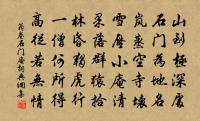 山到極深處
石門為地名
嵐蒸空寺壞
雪壓小庵清
果落群猿拾
林昏虎行
一僧何所得
高若無情
翁卷石門庵詞典網集